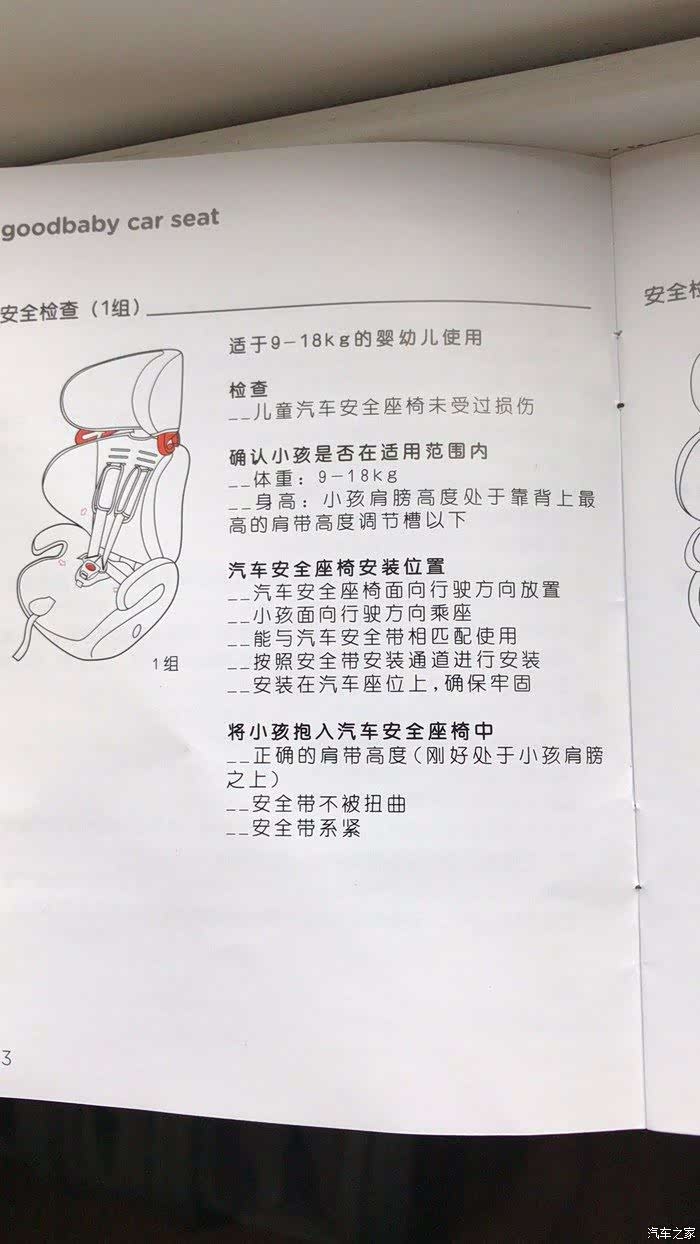 goodbaby car seat
安全检查（1组）
适于9-18kg的婴幼儿使用
检查
__儿童汽车安全座椅未受过损伤
确认小孩是否在适用范围内
__体重：9-18kg
__身高：小孩肩膀高度处于靠背上最
高的肩带高度调节槽以下
汽车安全座椅安装位置
__汽车安全座椅面向行驶方向放置
__小孩面向行驶方向乘座
__能与汽车安全带相匹配使用
__按照安全带安装通道进行安装
__安装在汽车座位上,确保牢固
1组
将小孩抱入汽车安全座椅中
__正确的肩带高度(刚好处于小孩肩膀
之上)
__安全带不被扭曲
__安全带系紧
3
安全检
汽车之家